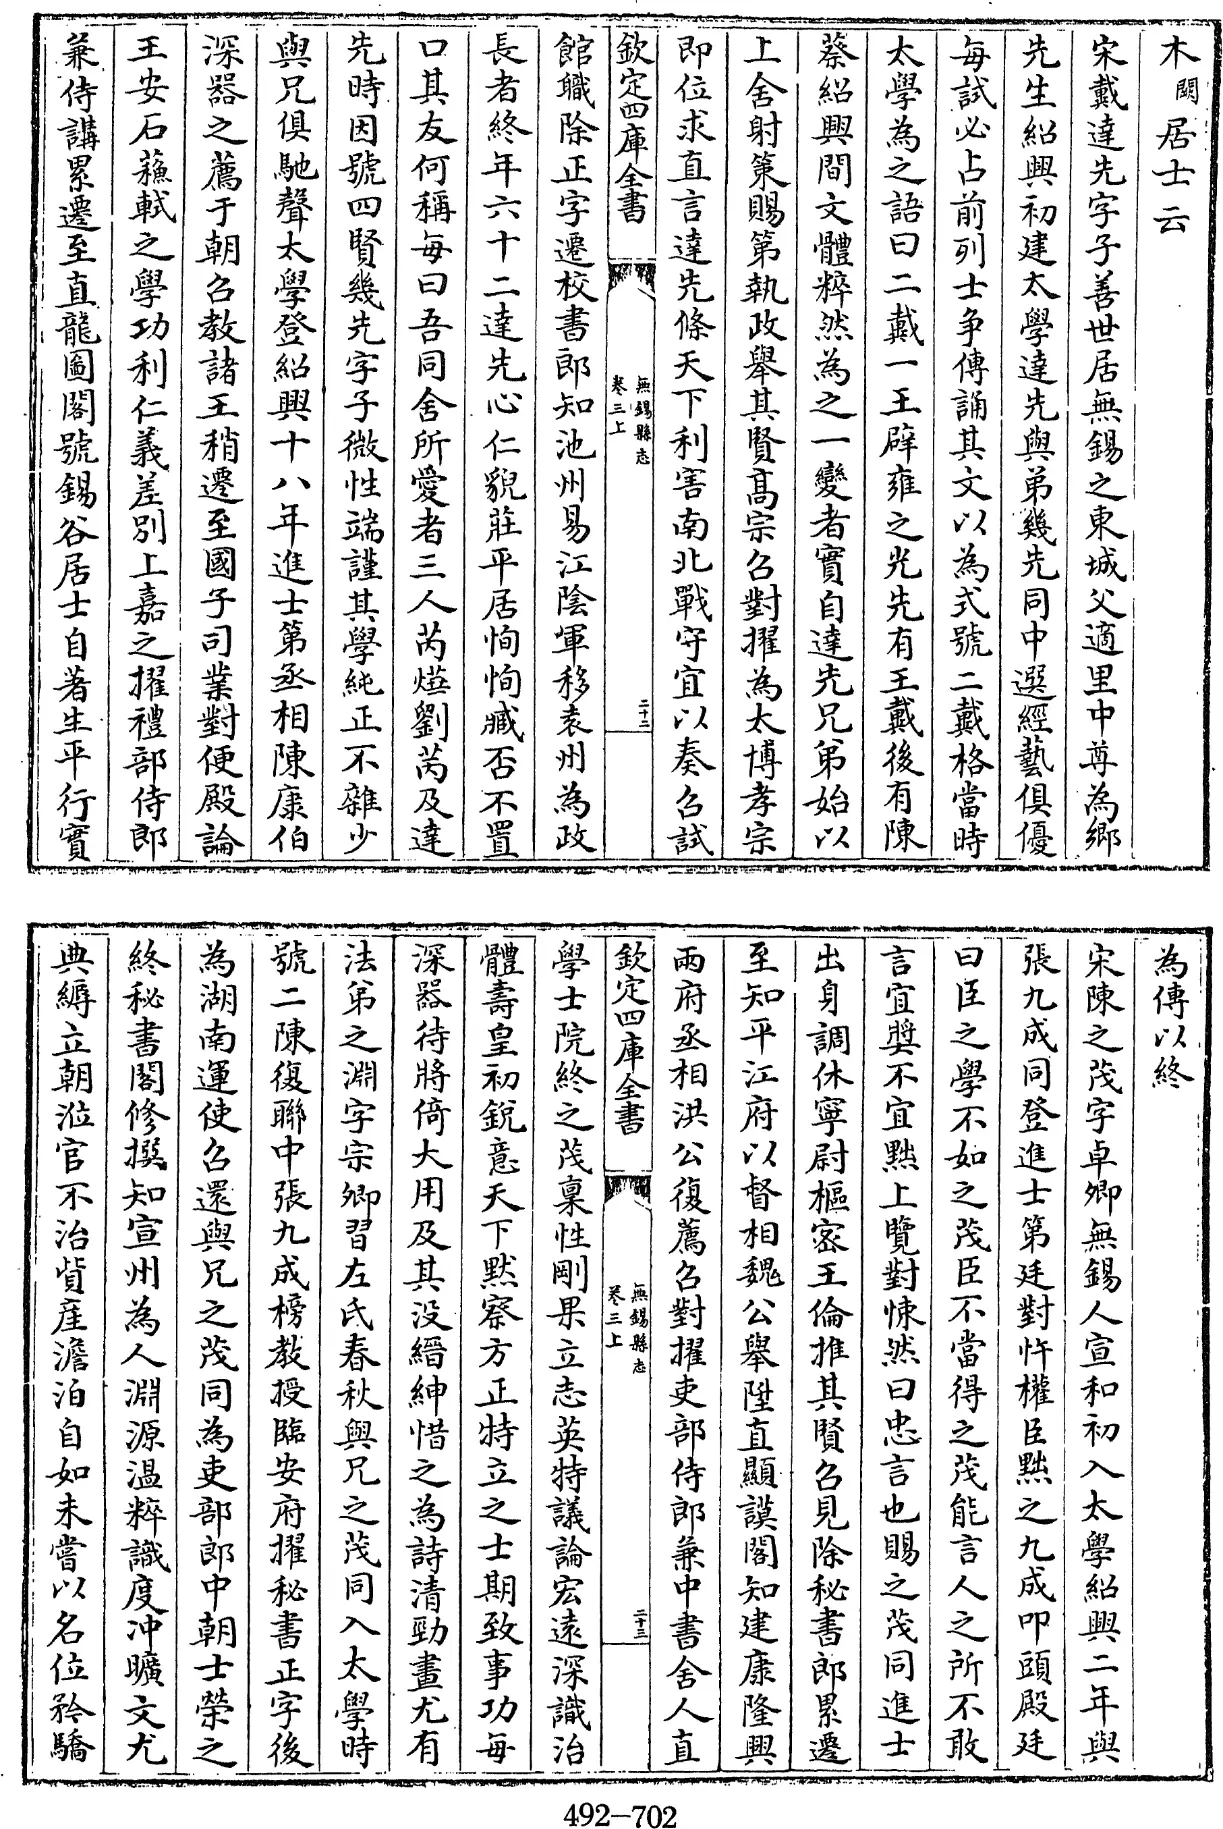 木闕居士云
宋戴達先字子善世居無錫之東城父適里中尊為鄉
先生紹興初建太學達先與弟幾先同中選經藝俱優
每試必占前列士争傳誦其文以為式號二戴格當時
太學為之語曰二戴一王辟雍之光先有王戴後有陳
蔡紹興間文體粹然為之一變者實自達先兄弟始以
上舍射策賜第執政舉其賢髙宗召對擢為太博孝宗
即位求直言達先條天下利害南北戰守宜以奏召試
欽定四庫全書
無錫縣志
卷三上
二十二
館職除正字遷校書郎知池州易江陰軍移袁州為政
長者終年六十二達先心仁貌莊平居恂恂臧否不置
口其友何稱每曰吾同舍所愛者三人芮燁劉芮及達
先時因號四賢幾先字子微性端謹其學純正不雜少
與兄俱馳聲太學登紹興十八年進士第丞相陳康伯
深器之薦于朝召教諸王稍遷至國子司業對便殿論
王安石蘓軾之學功利仁義差別上嘉之擢禮部侍郎
兼侍講累遷至直龍圖閣號錫谷居士自著生平行實
為傳以終
宋陳之茂字卓卿無錫人宣和初入太學紹興二年與
張九成同登進士第廷對忤權臣黜之九成叩頭殿廷
曰臣之學不如之茂臣不當得之茂能言人之所不敢
言宜奬不宜黜上覽對悚然曰忠言也賜之茂同進士
出身調休寧尉樞密王倫推其賢召見除秘書郎累遷
至知平江府以督相魏公舉陞直顯謨閣知建康隆興
兩府丞相洪公復薦召對擢吏部侍郎兼中書舍人直
欽定四庫全書
無錫縣志
卷三上
二十三
學士院終之茂稟性剛果立志英特議論宏遠深識治
體壽皇初銳意天下黙察方正特立之士期致事功每
深器待將倚大用及其没縉紳惜之為詩清勁畫尤有
法弟之淵字宗卿習左氏春秋與兄之茂同入太學時
號二陳復聯中張九成榜教授臨安府擢秘書正字後
為湖南運使召還與兄之茂同為吏部郎中朝士榮之
終秘書閣修撰知宣州為人淵源温粹識度冲曠文尤
典縟立朝涖官不治貲產澹泊自如未嘗以名位矜驕
492-702